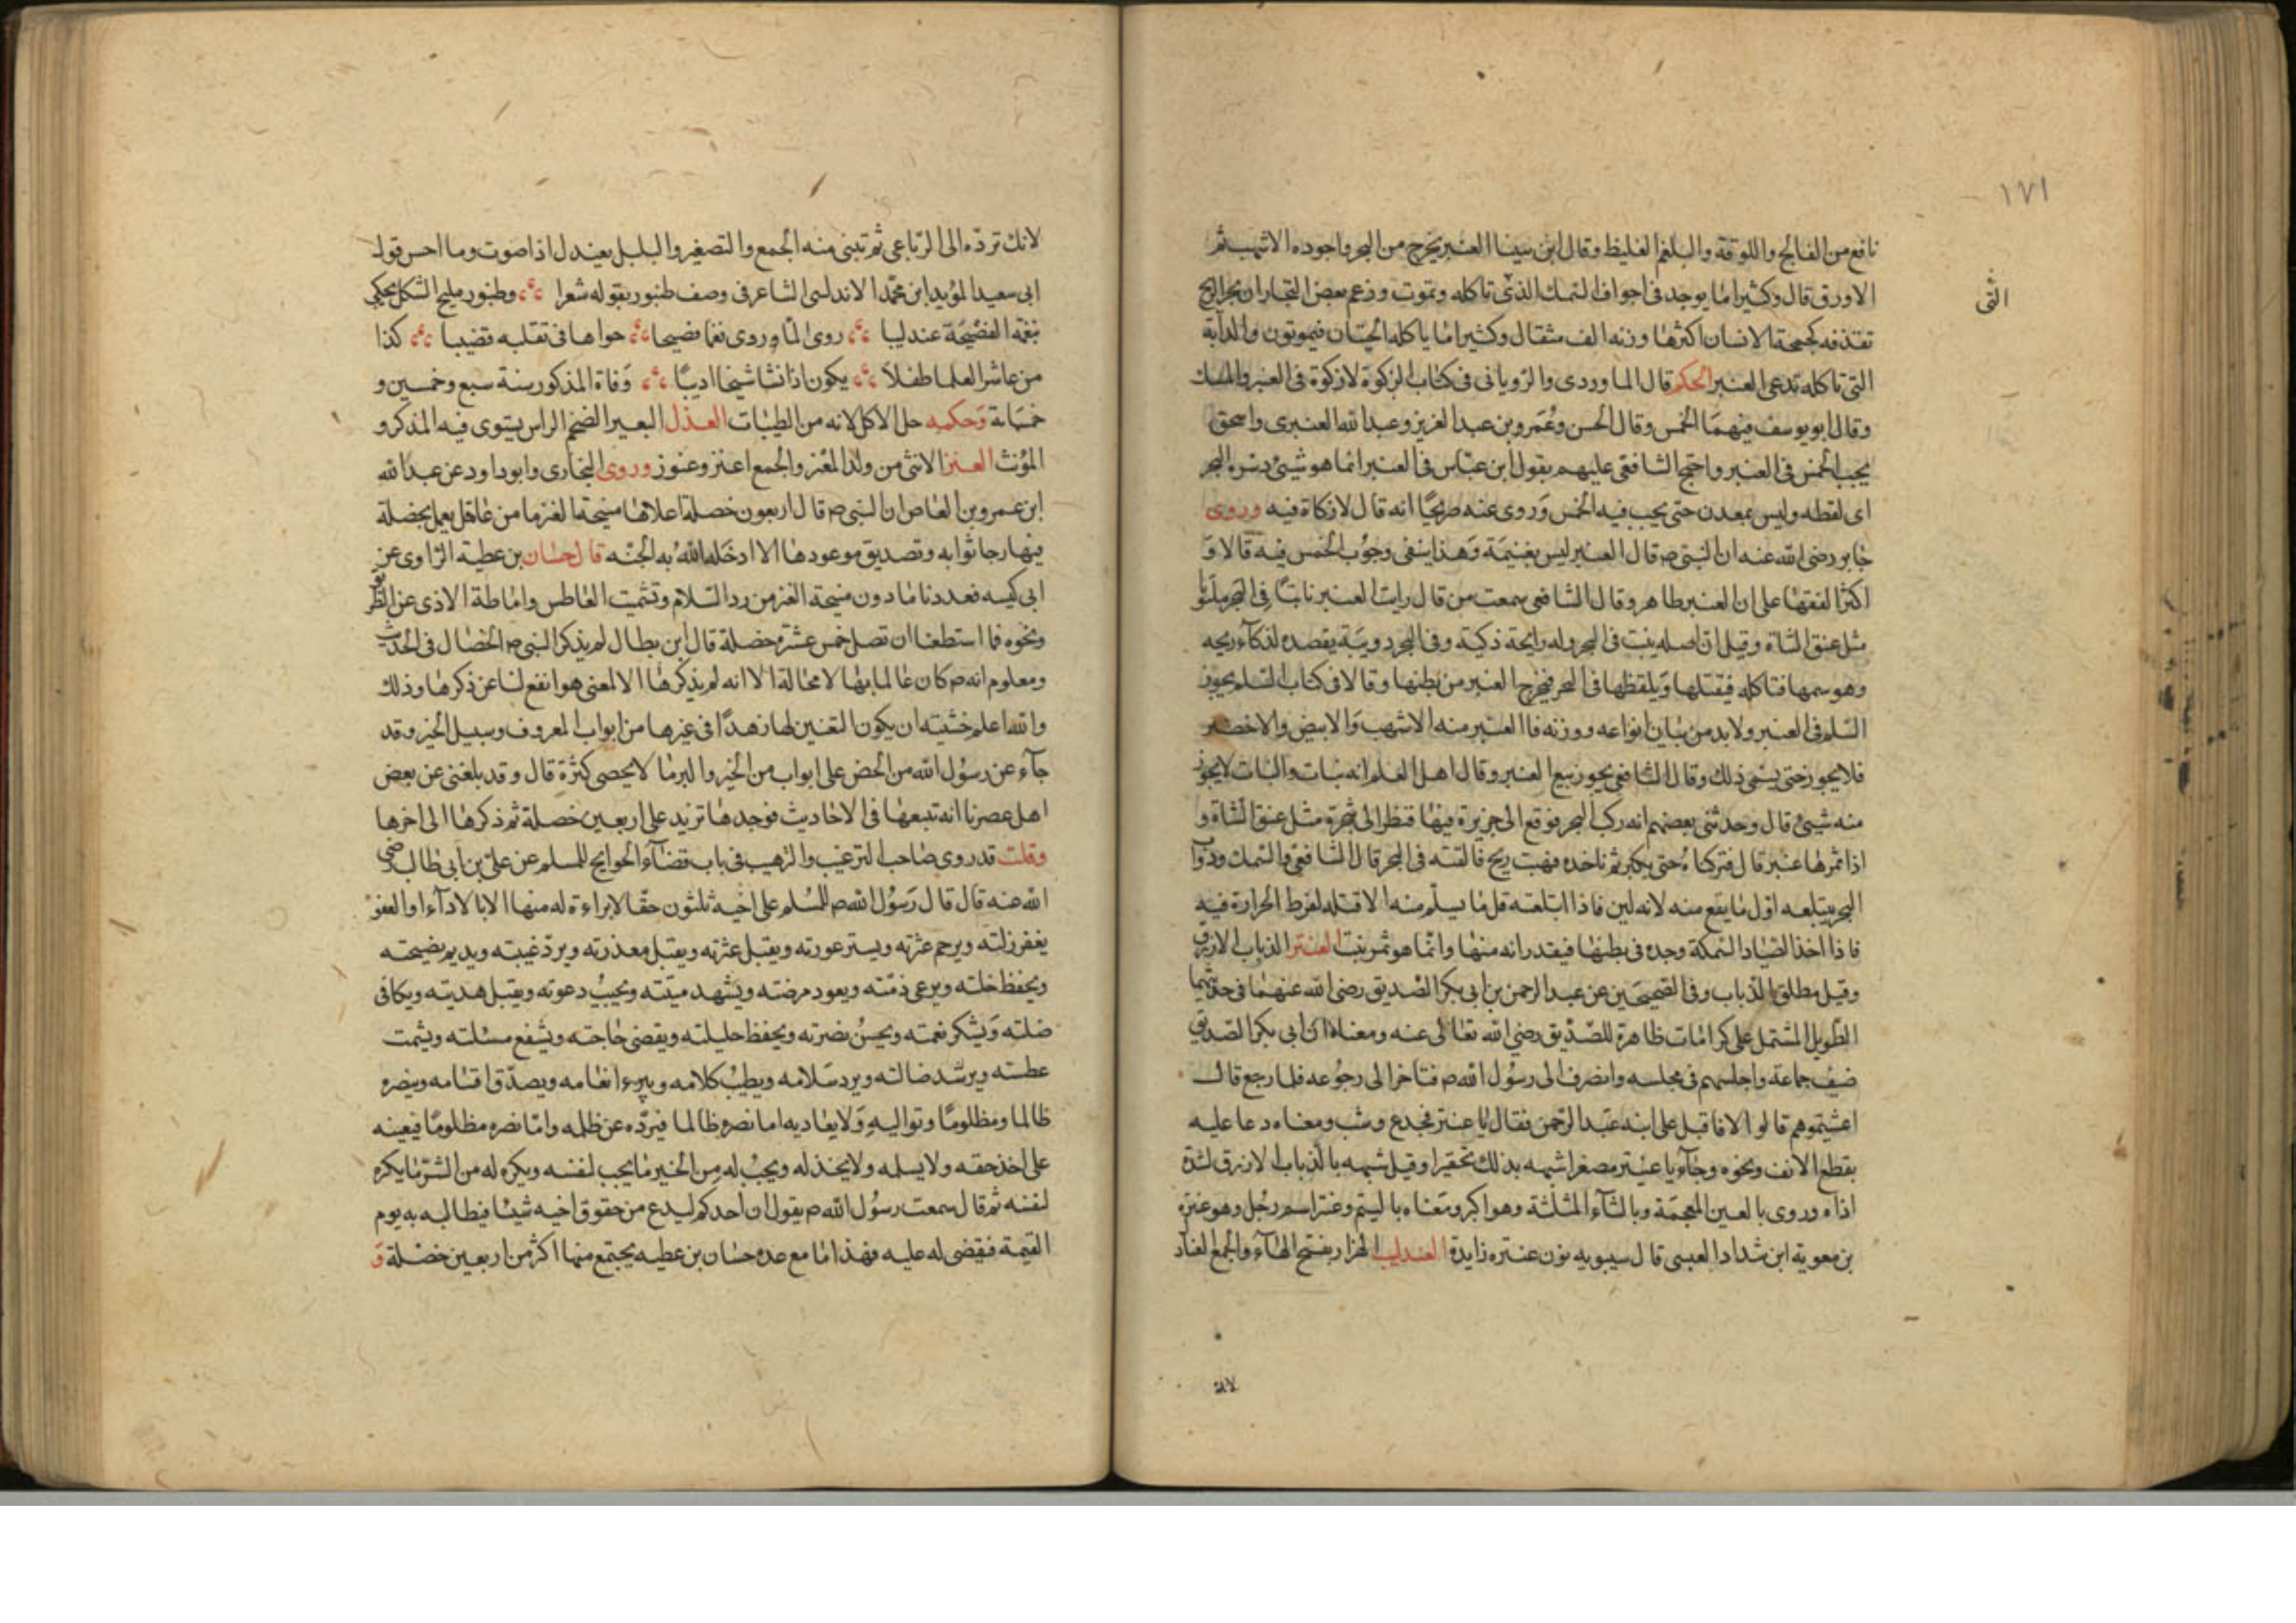 ١٧١
نافع من الفالج واللوقة والبلغم الغليظ وقال ابن سينا العنبر يخرج من البحر واجوده الاشهب ثم
الاورق قال وكثيرا ما يوجد فى اجواف السمك الذى تاكله وتموت وزعم بعض التجار ان بحر الزنج
تقذفه كجمجمة الانسان اكثرها وزنه الف مثقال وكثيرا ما ياكله الحيتان فيموتون والدابة
التى تاكله تدعى العنبر الحكم قال الماوردى والرويانى فى كتاب الزكوة لا زكوة فى العنبر والمسك
وقال ابو يوسف فيهما الخمس وقال الحسن وعمرو بن عبد العزيز وعبد الله العنبرى واسحق
يجب الخمس فى العنبر واحتج الشافعى عليهم بقول ابن عباس فى العنبر انما هو شىء دسره البحر
اى لفظه وليس بمعدن حتى يجب فيه الخمس وروى عنه صريحًا انه قال لا زكاة فيه وروى
جابر رضى الله عنه ان النبى ص قال العنبر ليس بغنيمة وهذا ينفى وجوب الخمس فيه قالا و
اكثر الفقها على ان العنبر طاهر وقال الشافعى سمعت من قال رايت العنبر نابتًا فى البحر ملتويا
مثل عنق الشاة وقيل ان اصله ينبت فى البحر وله رايحة ذكية وفى البحر دويبة يقصده لذكآء ريحه
وهو سمها فتاكله فيقتلها ويلفظها فى البحر فيخرج العنبر من بطنها وقالا فى كتاب السلم يجوز
السلم فى العنبر ولا بد من بيان انواعه ووزنه فاالعنبر منه الاشهب والابيض والاخضر
فلا يجوز حتى يسمى ذلك وقال الشافعى يجوز بيع العنبر وقال اهل العلم انه نبات والنبات لا يجوز
منه شىء قال وحدثنى بعضهم انه ركب البحر فوقع الى جزيرة فيها فنظر الى شجرة مثل عنق الشاة و
اذا ثمرها عنبر قال فتركناه حتى يكبر ثم ناخذه فهبت ريح فالقته فى البحر قال الشافعى والسمك ودواب
البحر يبتلعه اول ما يقع منه لانه لين فاذا ابتلعته قل ما يسلم منه الا قتله لفرط الحرارة فيه
فاذا اخذ الصياد السمكة وجده فى بطنها فيقدر انه منها وانما هو ثمر نبت العنتر الذباب الازرق
وقيل مطلق الذباب وفى الصحيحين عن عبد الرحمن بن ابى بكر الصديق رضى الله عنهما فى حديثهما
الطويل المشتمل على كرامات ظاهرة للصديق رضى الله تعالى عنه ومعناه ان ابى بكر الصديق
ضيف جماعة واجلسهم فى مجلسه وانصرف الى رسول الله ص فتاخرا لى رجوعه فلما رجع قال
اعشيتموهم قالوا لا فاقبل على ابنه عبد الرحمن فقال يا عنتر فجدع وسب ومعناه دعا عليه
بقطع الانف ونحوه وجآء يا عنيتر مصغرا شبهه بذلك تحقيرا وقيل شبهه بالذباب الازرق لشدة
اذاه وروى بالعين المعجمة وبالثآء المثلثة وهو اكبر ومعناه يا ليئم وعنتر اسم رجل وهو عنترة
بن معوية ابن شداد العبسى قال سيبويه نون عنتره زايدة العندليب الهزار بفتح الهآء والجمع العنادل
لانك
لانك تردّه الى الرباعى ثم تبنى منه الجمع والتصغير والبلبل يعندل اذا صوت وما احسن قول
ابى سعيد المؤيد ابن محمد الاندلسى الشاعر فى وصف طنبور بقوله شعرا وطنبور مليح الشكل يحكى
بنغمته الفصيحة عندليبا روى لما وردى نغما فصيحا حواها فى تقلبه قضيبا كذا
من عاشر العلما طفلا يكون اذا نشا شيخا اديبًا وفاة المذكور سنة سبع وخمسين و
خمسماتة وحكمه حل الاكل لانه من الطيبات العندل البعير الضخم الراس يستوى فيه المذكر و
المؤنث العنز الانثى من ولد المعز والجمع اعنز وعنوز وروى البخارى وابو داود عن عبد الله
ابن عمرو بن العاص ان النبى ص قال اربعون خصلة اعلاها منيحة العنز ما من عامل يعمل بخصلة
فيها رجا ثوابه وتصديق موعودها الا ادخله الله به الجنة قال حسان بن عطية الراوى عن
ابى كبسه فعددنا ما دون منيحة العنز من رد السلام وتشميت العاطس واماطة الاذى عن الطريق
ونحوه فما استطعنا ان تصل خمس عشرة خصلة قال ابن بطال لم يذكر النبى ص الخصال فى الحديث
ومعلوم انه ص كان عالما بها لا محالة الا انه لم يذكرها الا لمعنى هو انفع لنا عن ذكرها وذلك
والله اعلم خشيته ان يكون التعيين لها زهدًا فى غيرها من ابواب المعروف وسبيل الخير وقد
جآء عن رسول الله من الحض على ابواب من الخير والبر ما لا يحصى كثرة قال وقد بلغنى عن بعض
اهل عصرنا انه تتبعها فى الاحاديث فوجدها تزيد على اربعين خصلة ثم ذكرها الى اخرها
وقلت قد روى صاحب الترغيب والترهيب فى باب قضآء الحوايج للمسلم عن على بن ابى طالب رضى
الله عنه قال قال رسول الله ص للمسلم على اخيه ثلثون حقا لا براءة له منها الا بالادآء او العفو
يغفر زلته ويرحم عثرته ويستر عورته ويقبل عثرته ويقبل معذرته ويرد غيبته ويديم نصيحته
ويحفظ خلته ويرعى ذمته ويعود مرضته ويشهد ميتته ويجيب دعوته ويقبل هديته ويكافى
ضلته ويشكر نعمته ويحسن نصرته ويحفظ حليلته ويقضى حاجته ويشفع مسئلته ويشمت
عطسته ويرشد ضالته ويرد سلامه ويطيب كلامه ويبرء انعامه ويصدق اقسامه وينصره
ظالما ومظلومًا وتواليه ولا يعاديه اما نصره ظالما فيرده عن ظلمه واما نصره مظلومًا فيعينه
على اخذ حقه ولا يسلمه ولا يخذله ويحب له من الخير ما يحب لنفسه ويكره له من الشر ما يكره
لنفسه ثم قال سمعت رسول الله ص يقول ان احدكم ليدع من حقوق اخيه شيئا فيطالبه به يوم
القيمة فيقضى له عليه فهذا ما مع عده حسان بن عطيه يجتمع منها اكثر من اربعين خصلة و